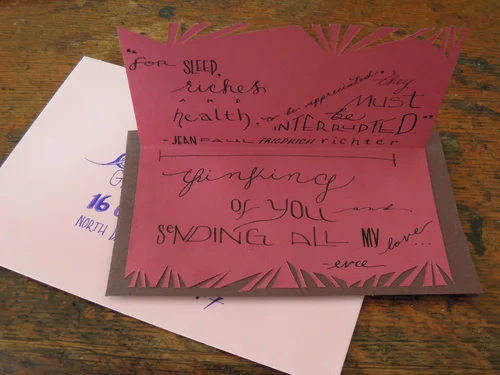 "for SLEEP,
riches
AND
health, to be appreciated, they
MUST
be
INTERRUPTED."
- JEAN PAUL FRIEDRICH richter
thinking
OF YOU and
SENDING ALL MY love...
- evie
16
NORTH